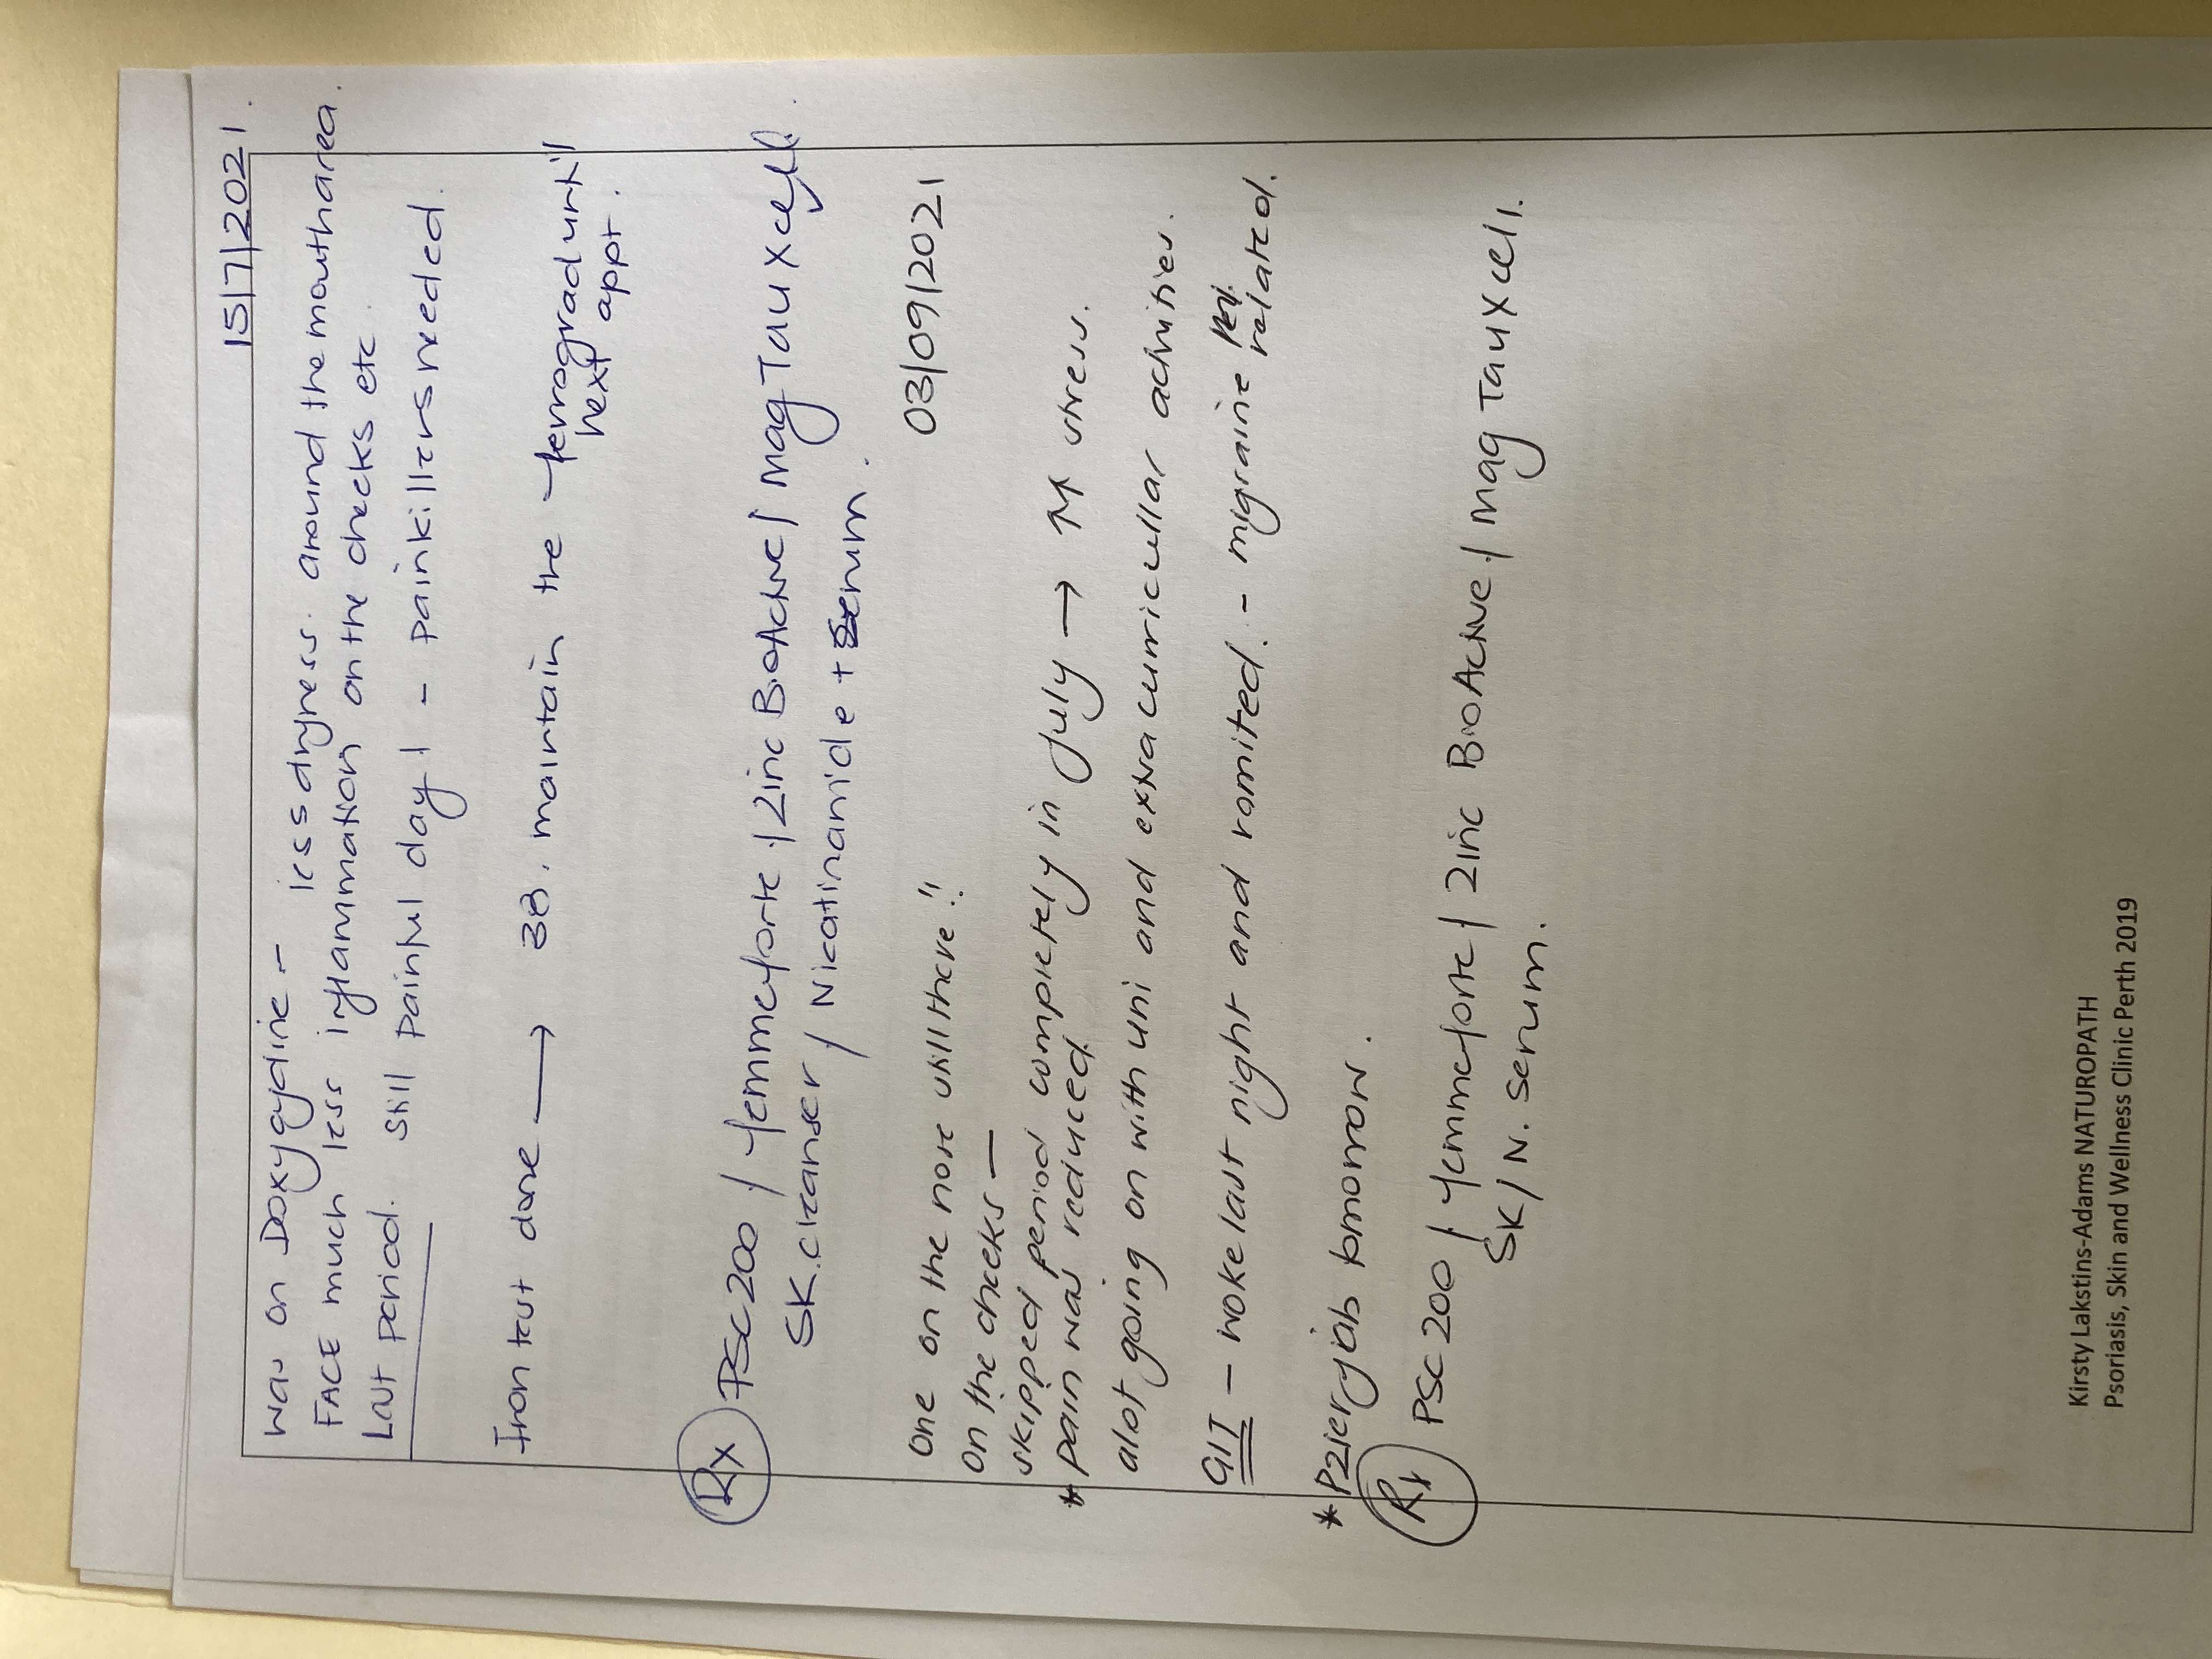 15/7/2021
Was on Doxycycline - less dryness. around the mouth area.
FACE much less inflammation on the cheeks etc.
Last period. Still painful day 1 - painkillers needed.
Iron test done → 38. maintain the ferrograd until
next appt.
Rx PSC200 / femmeforte / Zinc BioActive / Mag Tau Xcell.
SK. cleanser / Nicotinamide + Serum.
03/09/2021
One on the nose still there!!
On the cheeks —
skipped period completely in July → ↑↑ stress.
* pain was reduced.
alot going on with uni and extra curricular activities.
GIT - woke last night and vomited. - migraine related.
* Pzier jab tomorrow.
Rx PSC200 / femmeforte / Zinc BioActive / Mag TauXcell.
SK / N. serum.
Kirsty Lakstins-Adams NATUROPATH
Psoriasis, Skin and Wellness Clinic Perth 2019